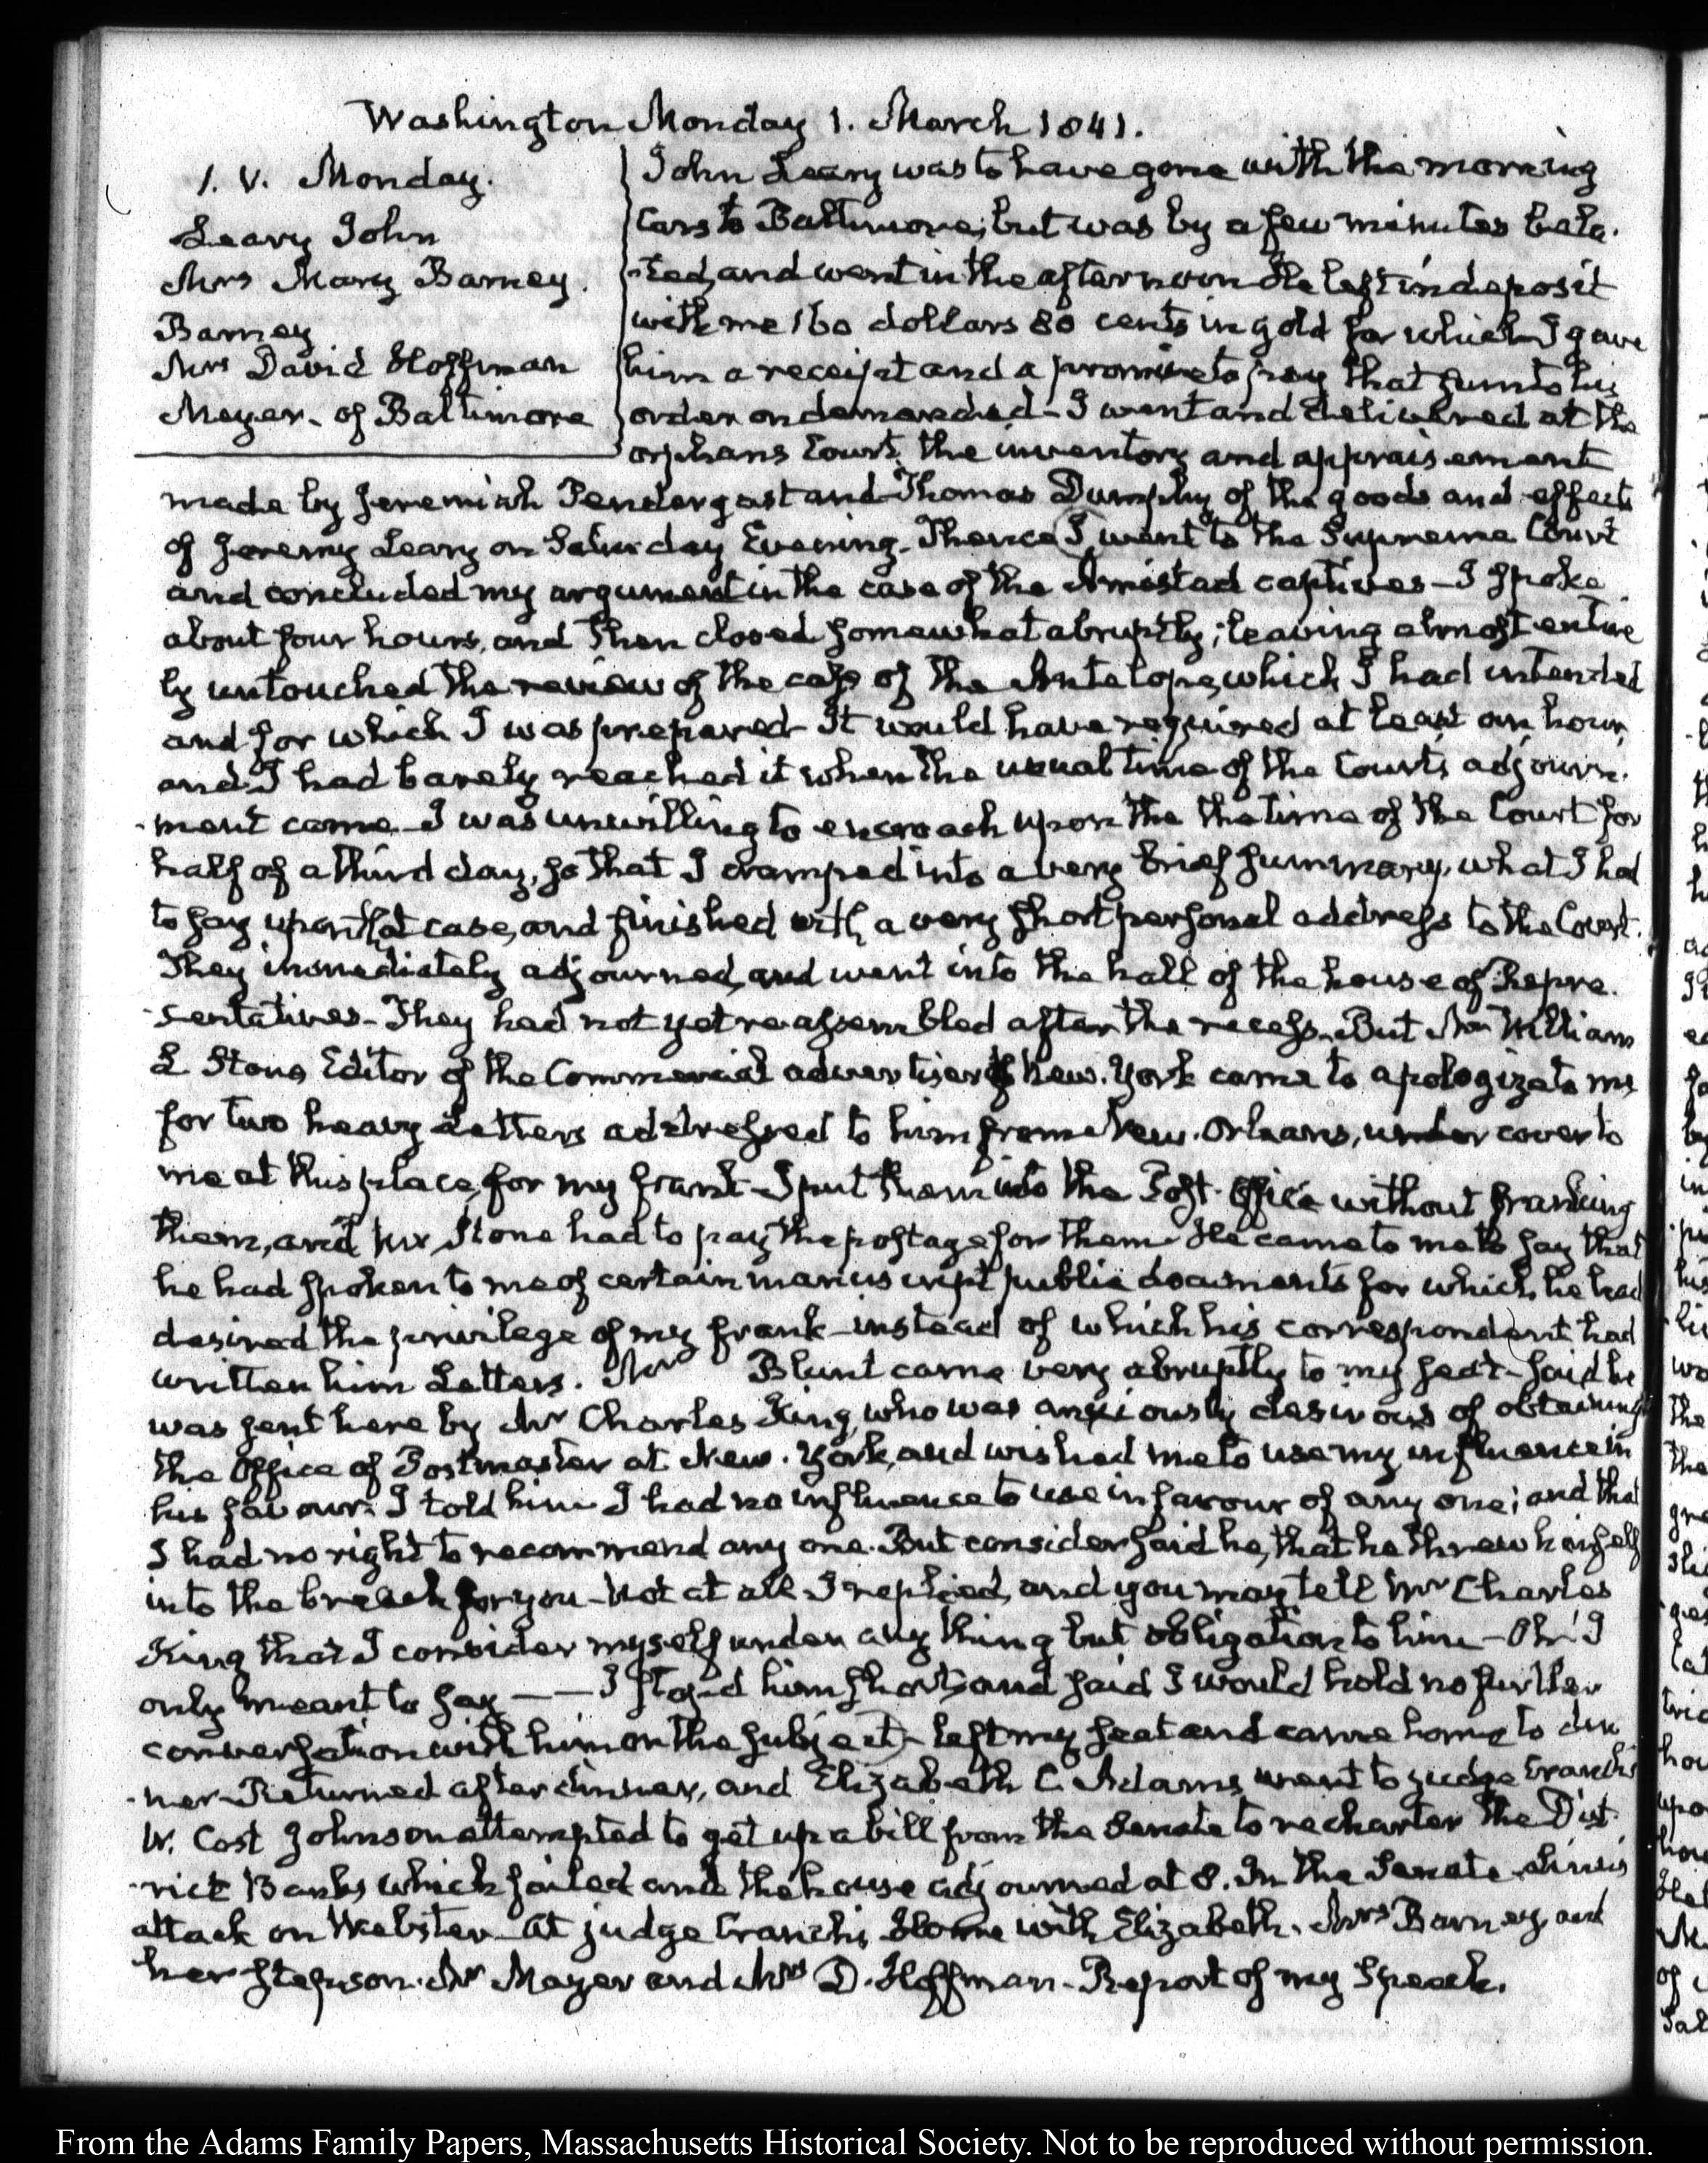 Washington Monday 1. March 1841.
1. V. Monday.
Leary John
Mrs Mary Barney.
Barney
Mrs David Hoffman
Meyer. of Baltimore
John Leary was to have gone with the morning
Cars to Baltimore; but was by a few minutes bela-
-ted, and went in the afternoon He left in deposit
with me 160 dollars 80 cents in gold for which I gave
him a receipt and a promise to pay that sum to his
order on demanded - I went and delivered at the
orphans Court, the inventory and appraisement
made by Jeremiah Pendergast and Thomas Dumphy of the goods and effects
of Jeremy Leary on Saturday Evening. Thence I went to the Supreme Court
and concluded my argument in the case of the Amistad captives - I spoke
about four hours, and then closed somewhat abruptly; leaving almost entire
ly untouched the review of the case of the Antelope, which I had intended
and for which I was prepared - It would have required at least an hour,
and I had barely reached it when the usual time of the Court's adjourn-
-ment came - I was unwilling to encroach upon the the time of the Court for
half of a third day, so that I cramped into a very brief summary, what I had
to say upon that case, and finished with a very short personal address to the Court.
They immediately adjourned, and went into the hall of the house of Repre-
-sentatives - They had not yet reassembled after the recess. But Mr William
L Stone Editor of the Commercial advertiser of New-York came to apologize to me
for two heavy Letters addressed to him from New-Orleans, under cover to
me at this place, for my frank - I put them into the Post-Office without franking
them, and Mr Stone had to pay the postage for them - He came to me to say that
he had spoken to me of certain manuscript public documents for which he had
desired the privilege of my frank - instead of which his correspondent had
written him Letters. Mr Blunt came very abruptly to my seat - said he
was sent here by Mr Charles King, who was anxiously desirous of obtaining
the Office of Postmaster at New-York, and wished me to use my influence in
his favour. I told him I had no influence to use in favour of any one; and that
I had no right to recommend any one. But consider said he, that he threw himself
into the breach for you - Not at all I replied, and you may tell Mr Charles
King that I consider myself under any thing but obligation to him - Oh! I
only meant to say — — I stop'd him short, and said I would hold no further
conversation with him on the subject) - left my seat and came home to din
-ner - Returned after dinner, and Elizabeth C. Adams, went to judge Cranch's
W. Cost Johnson attempted to get up a bill from the Senate to recharter the Dist-
-rict Banks which failed and the house adjourned at 8. In the Senate
attack on Webster - At judge Cranch's Home with Elizabeth. Mrs Barney and
her stepson. Mr Mayer and Mrs D. Hoffman - Report of my Speech.
From the Adams Family Papers, Massachusetts Historical Society. Not to be reproduced without permission.